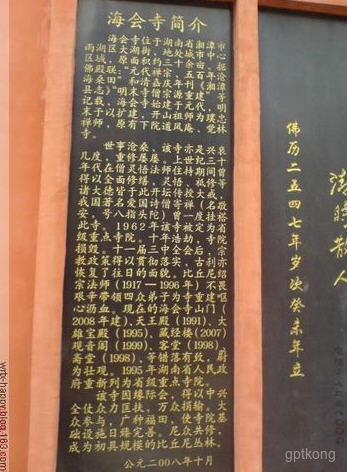 海会寺简介
海会寺位于湖南省湘潭市中心
雨湖区大湖街，处城市中沧
区域，原面积约十余亩，
佛殿联："元代禅宗，五百年
海桑田"和清嘉庆年刊《湘潭
县志》"明末寺僧宗源重建"等
记载，海会寺始建于元代，明
末予以扩建，开山祖师为璞愚
禅师，原有下院道风庵、觉林
寺。
世事沧桑，该寺亦是兴衰
几度，重修屡屡。上世纪三十
年代在僧灵悟法师住持期间等
得以全面修缮，灵悟、祗修，
诸大德皆于此开坛传授大戒，
我国著名爱国诗僧寄禅（名敬
安，号八指头陀）曾一度挂褡
此寺。1962年该寺被定为省
级重点寺院。十年浩劫，寺院
损毁。十一届三中全会后，宗
教政策得以贯彻落实，古刹亦
恢复了往日的面貌。比丘尼绍
宗法师（1917—1996年）不畏
艰辛带领四众弟子为寺重建呕
心沥血。现在的海会寺山门（
2008年建）、天王殿（1991）、大
雄宝殿（1995）、藏经楼（2007）
观音阁（1999）、客堂（1998）、
斋堂（1998），等错落有致，蔚
为壮观。1995年湖南省人民政
府重新列为省级重点寺院。
该寺因缘际会，得以中兴
全仗众力匡扶，万众捐输。大
众参与，广种福田，使寺院基
础设施日臻完善，尼众共修，
成为初具规模的比丘尼丛林。
公元二00八年十月
佛历二五四七年岁次癸未年立
清时散人
gptkong